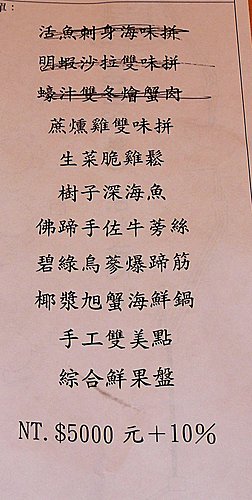 單：
活魚刺身海味拼
明蝦沙拉雙味拼
蠔汁雙冬燴蟹肉
蔗燻雞雙味拼
生菜脆雞鬆
樹子深海魚
佛蹄手佐牛蒡絲
碧綠烏蔘爆蹄筋
椰漿旭蟹海鮮鍋
手工雙美點
綜合鮮果盤
NT. $5000 元＋10%